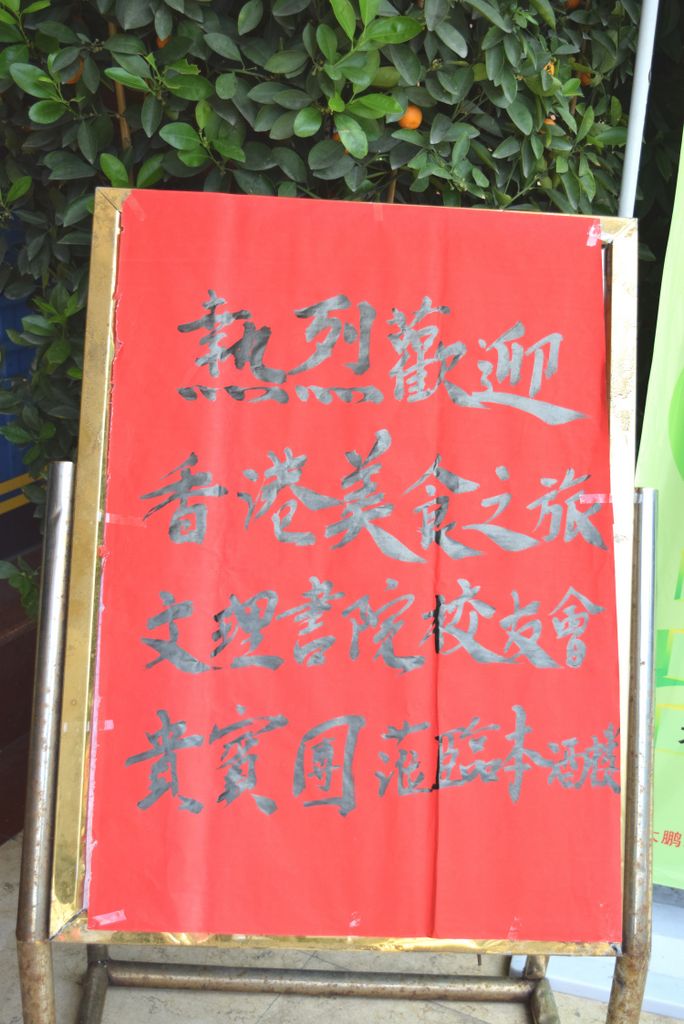 熱烈歡迎
香港美食之旅
文理書院校友會
貴賓團蒞臨本酒樓
大鹏